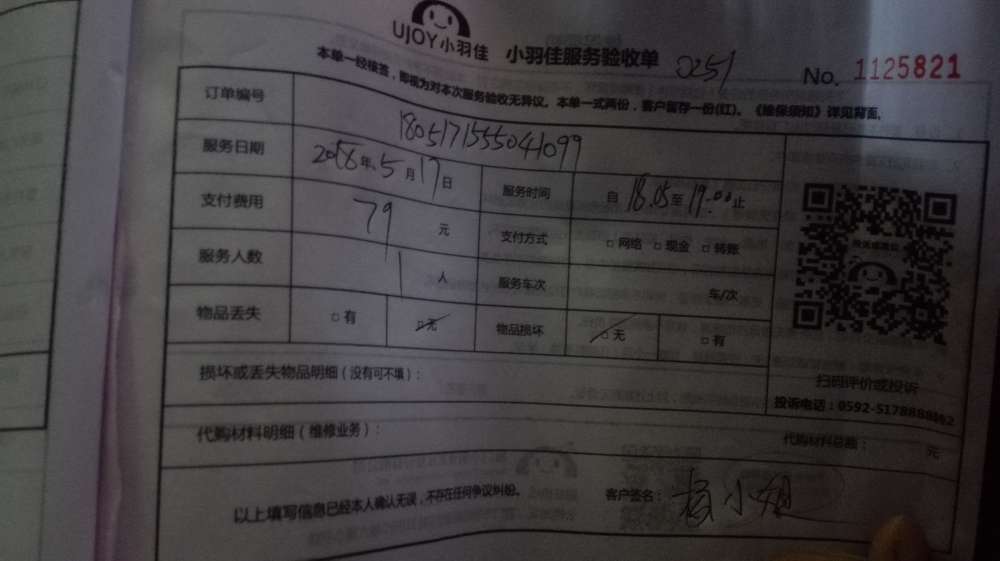 UJOY小羽佳 小羽佳服务验收单 0251
No. 1125821
本单一经接签，即视为对本次服务验收无异议。本单一式两份，客户暂存一份(红)。《维保须知》详见背面。
订单编号 1805171555041099
服务日期 2018年5月17日 服务时间 自18:05至19:00止
支付费用 79元 支付方式 □网络 □现金 □转账
服务人数 1人 服务车次 车/次
物品丢失 □有 □无 物品损坏 □无 □有
损坏或丢失物品明细（没有可不填）：
扫码评价或投诉
投诉电话：0592-5178888
代购材料明细（维修业务）： 代购材料总额： 元
以上填写信息已经本人确认无误，不存在任何争议纠纷。 客户签名： 小姐